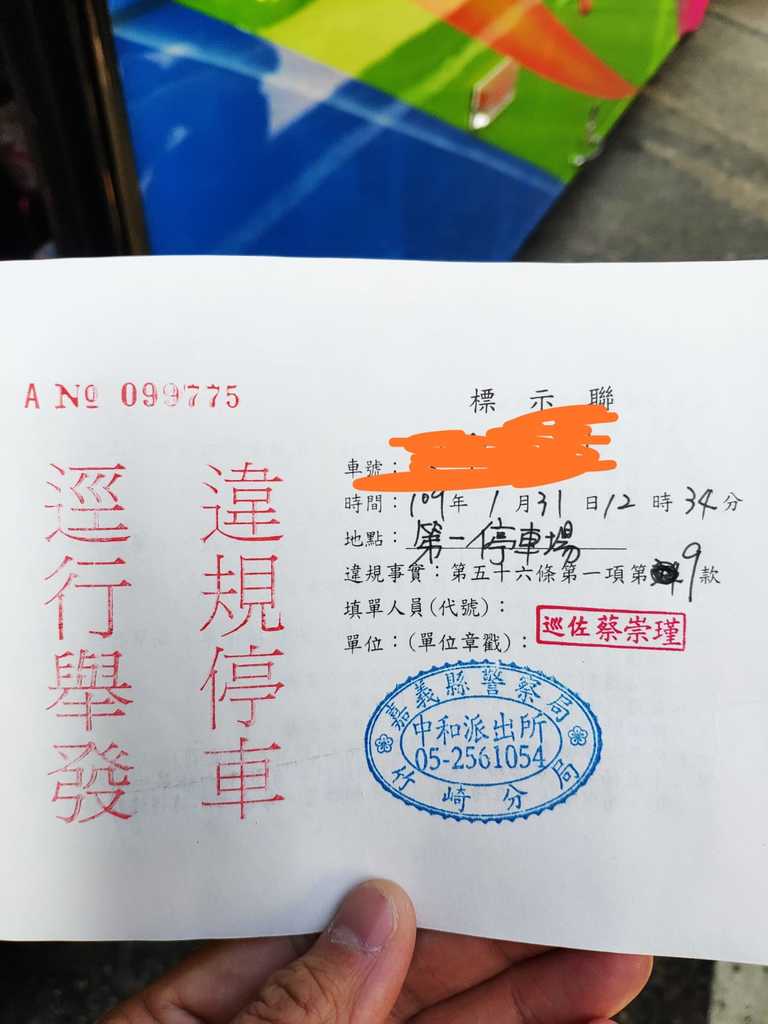 A № 099775
標示聯
違規停車
逕行舉發
車號：
時間：109年1月31日12時34分
地點：第一停車場
違規事實：第五十六條第一項第9款
填單人員(代號)：
巡佐蔡崇瑾
單位：(單位章戳)：
嘉義縣警察局
中和派出所
05-2561054
竹崎分局